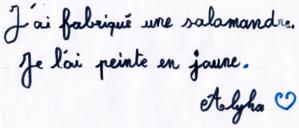 J'ai fabriqué une salamandre.
Je l'ai peinte en jaune.
Alyha